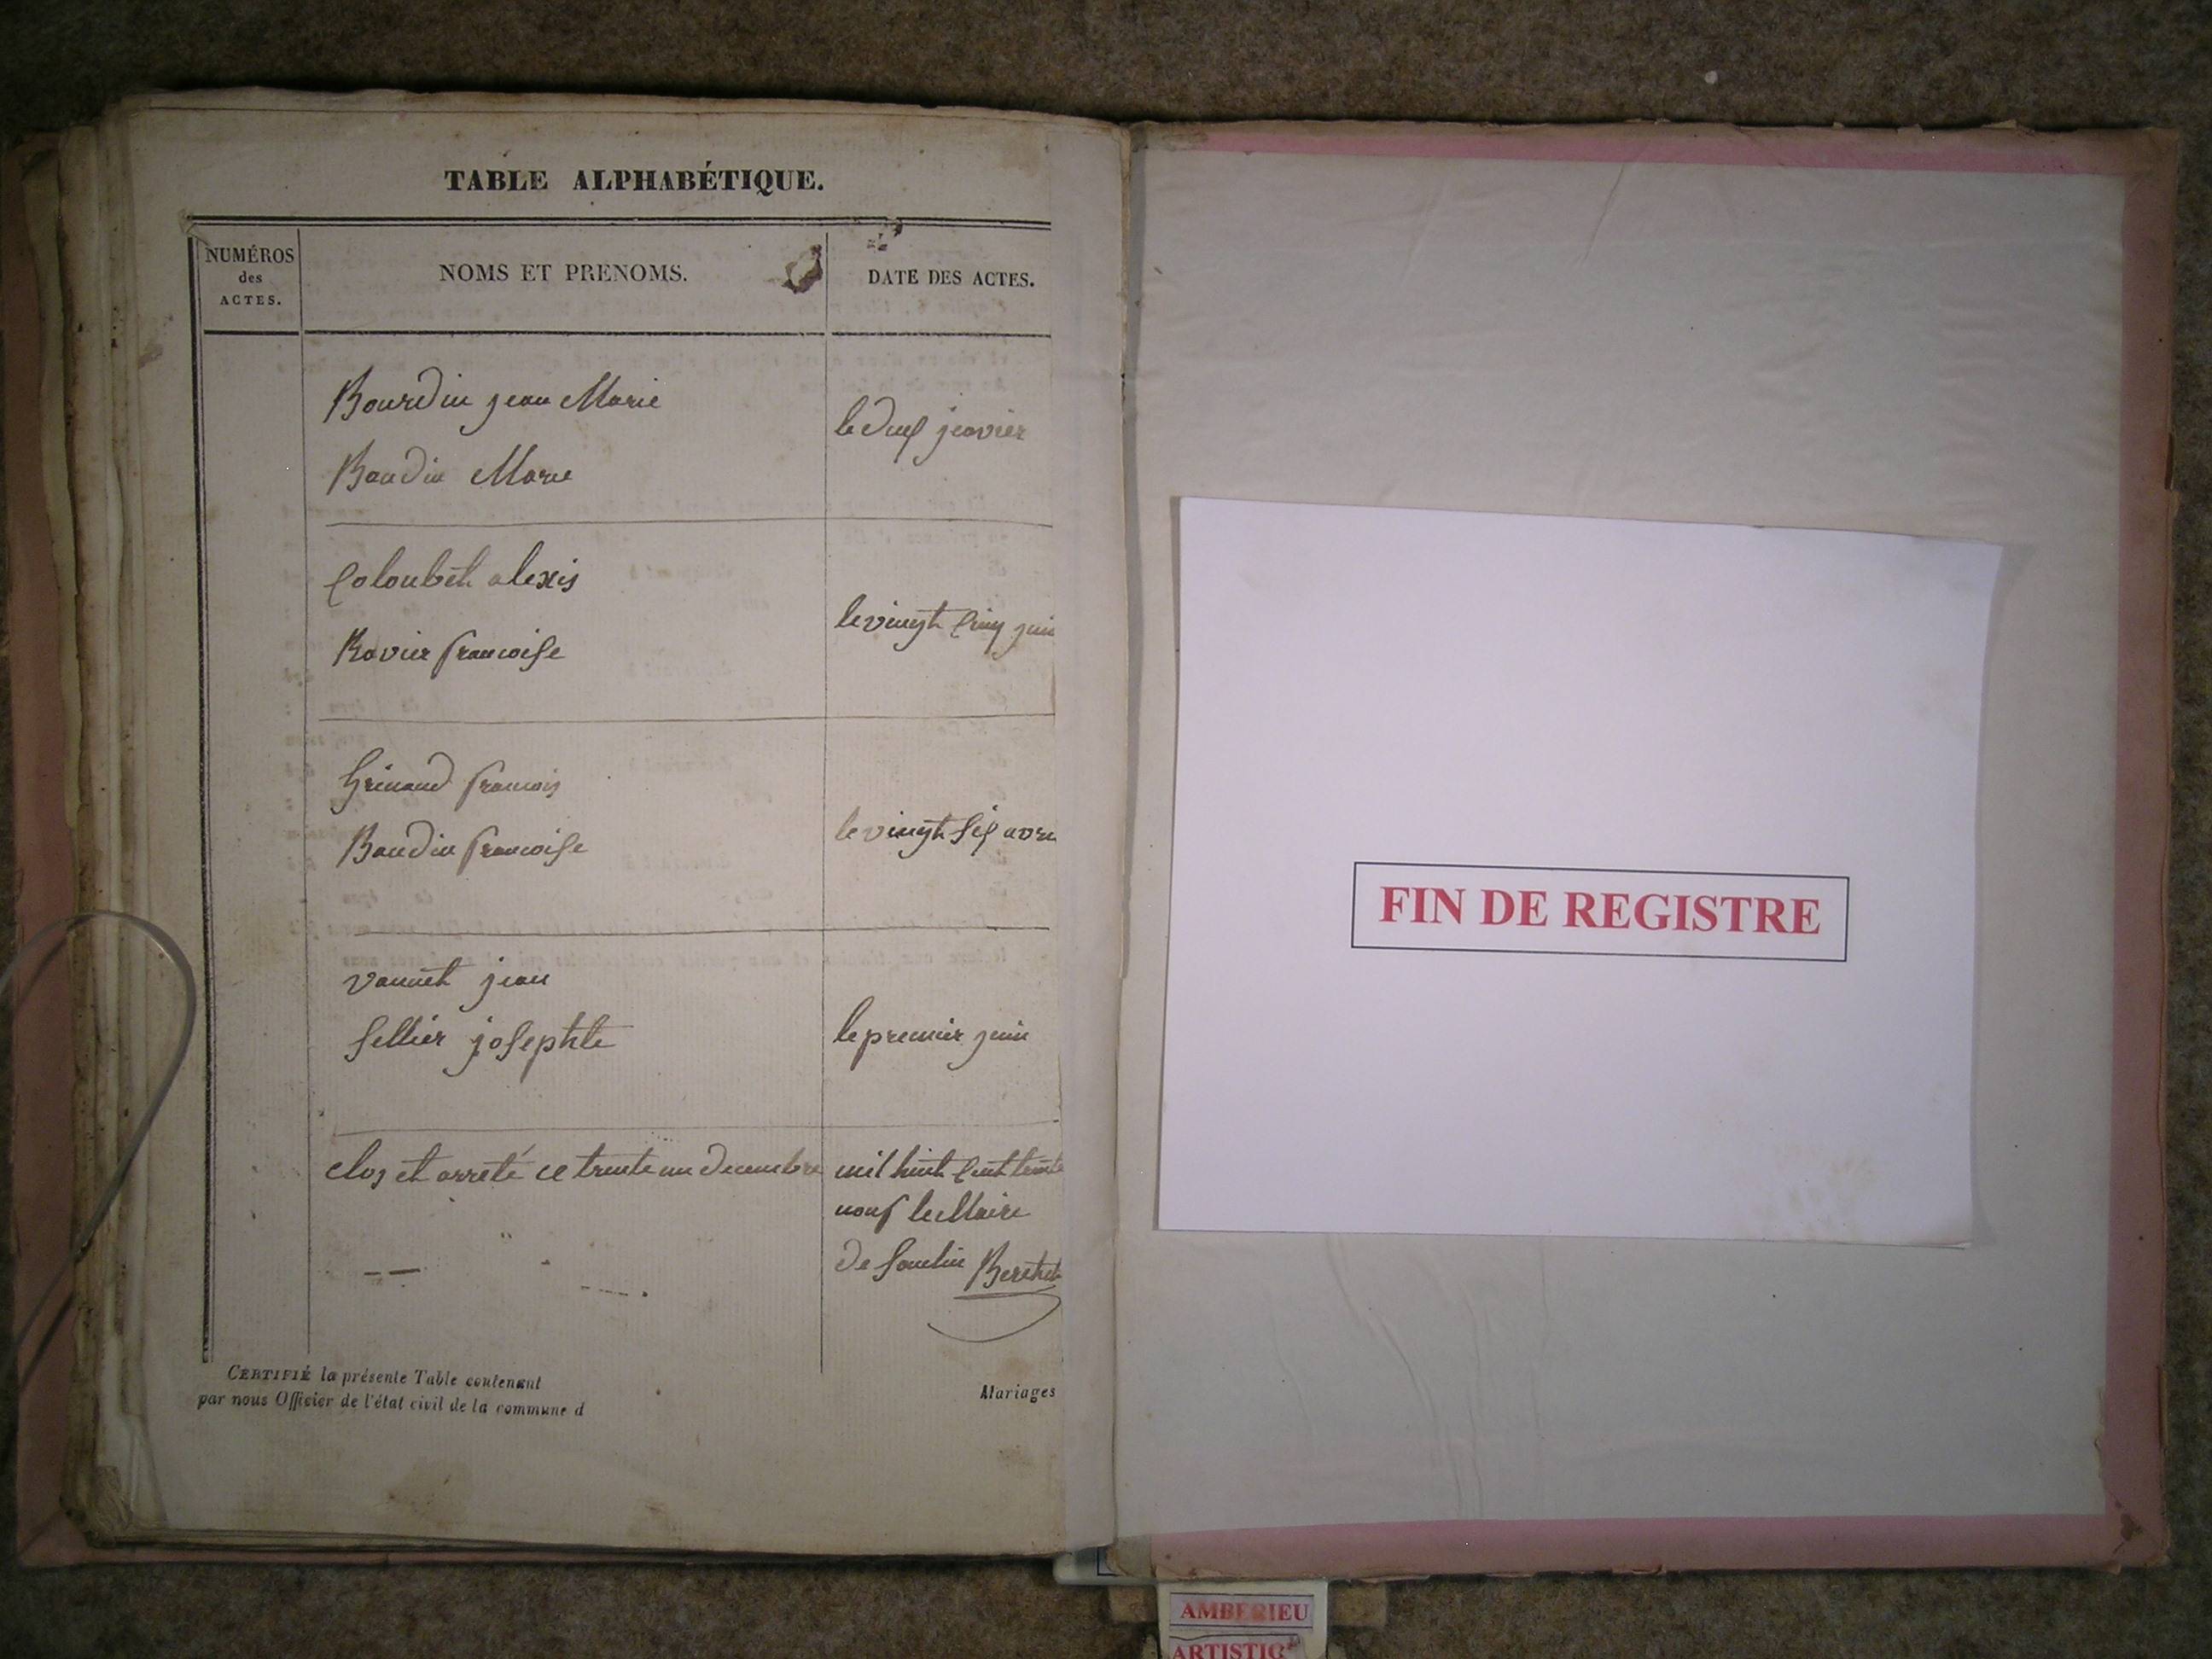 TABLE ALPHABÉTIQUE.
NUMÉROS
des
ACTES.
NOMS ET PRENOMS.
DATE DES ACTES.
Bourdin jean Marie
le deux janvier
Baudin Marie
Coloubet alexis
le vingt cinq juin
Ravier francoise
Grinand francois
Baudin francoise
le vingt six avri
vannet jean
Sellier josephte
le premier juin
clos et arreté ce trente un decembre mil huit cent trente
nouf le Maire
de
CERTIFIÉ la présente Table contenant
par nous Officier de l'état civil de la commune d
Mariages
FIN DE REGISTRE
AMBERIEU
ARTISTIC